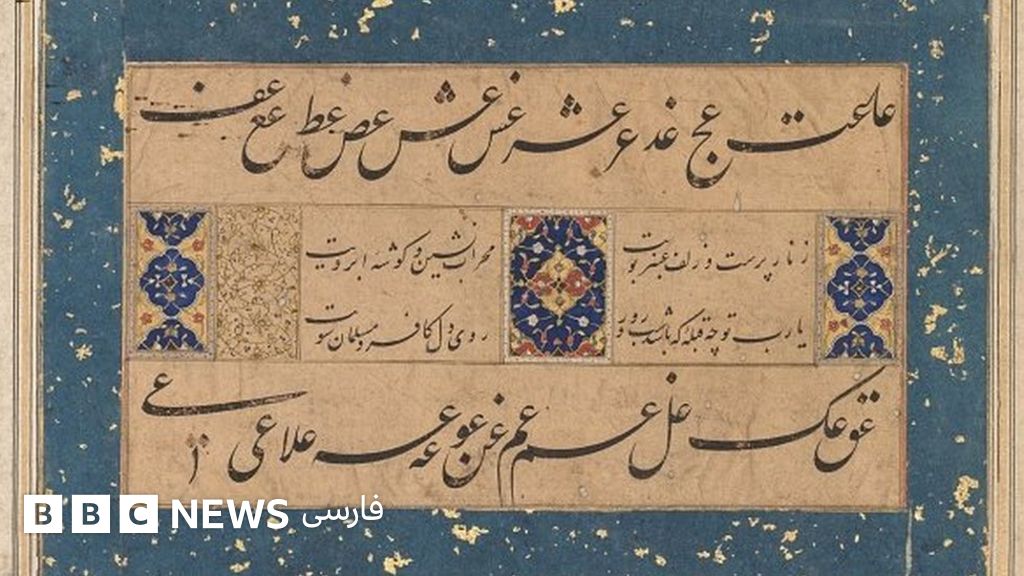 عا عت عج عد عر عس عش عص عط عع عف
زنار پرست و زلف عنبر بویت محراب نشین و گوشه ابرویت
یا رب تو چه قبله که باشد شب و روز روی دل کافر و مسلمان سویت
عق عک عل عم عن عو عه علا عی
BBC NEWS فارسی